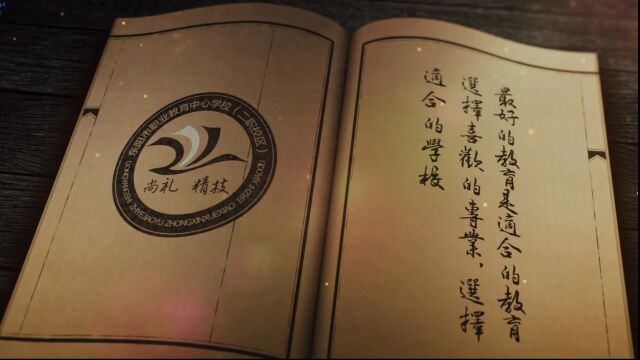 东阳市职业教育中心学校（二职校区）
尚礼 精技
最好的教育是適合的教育
選擇喜歡的專業，選擇
適合的學校